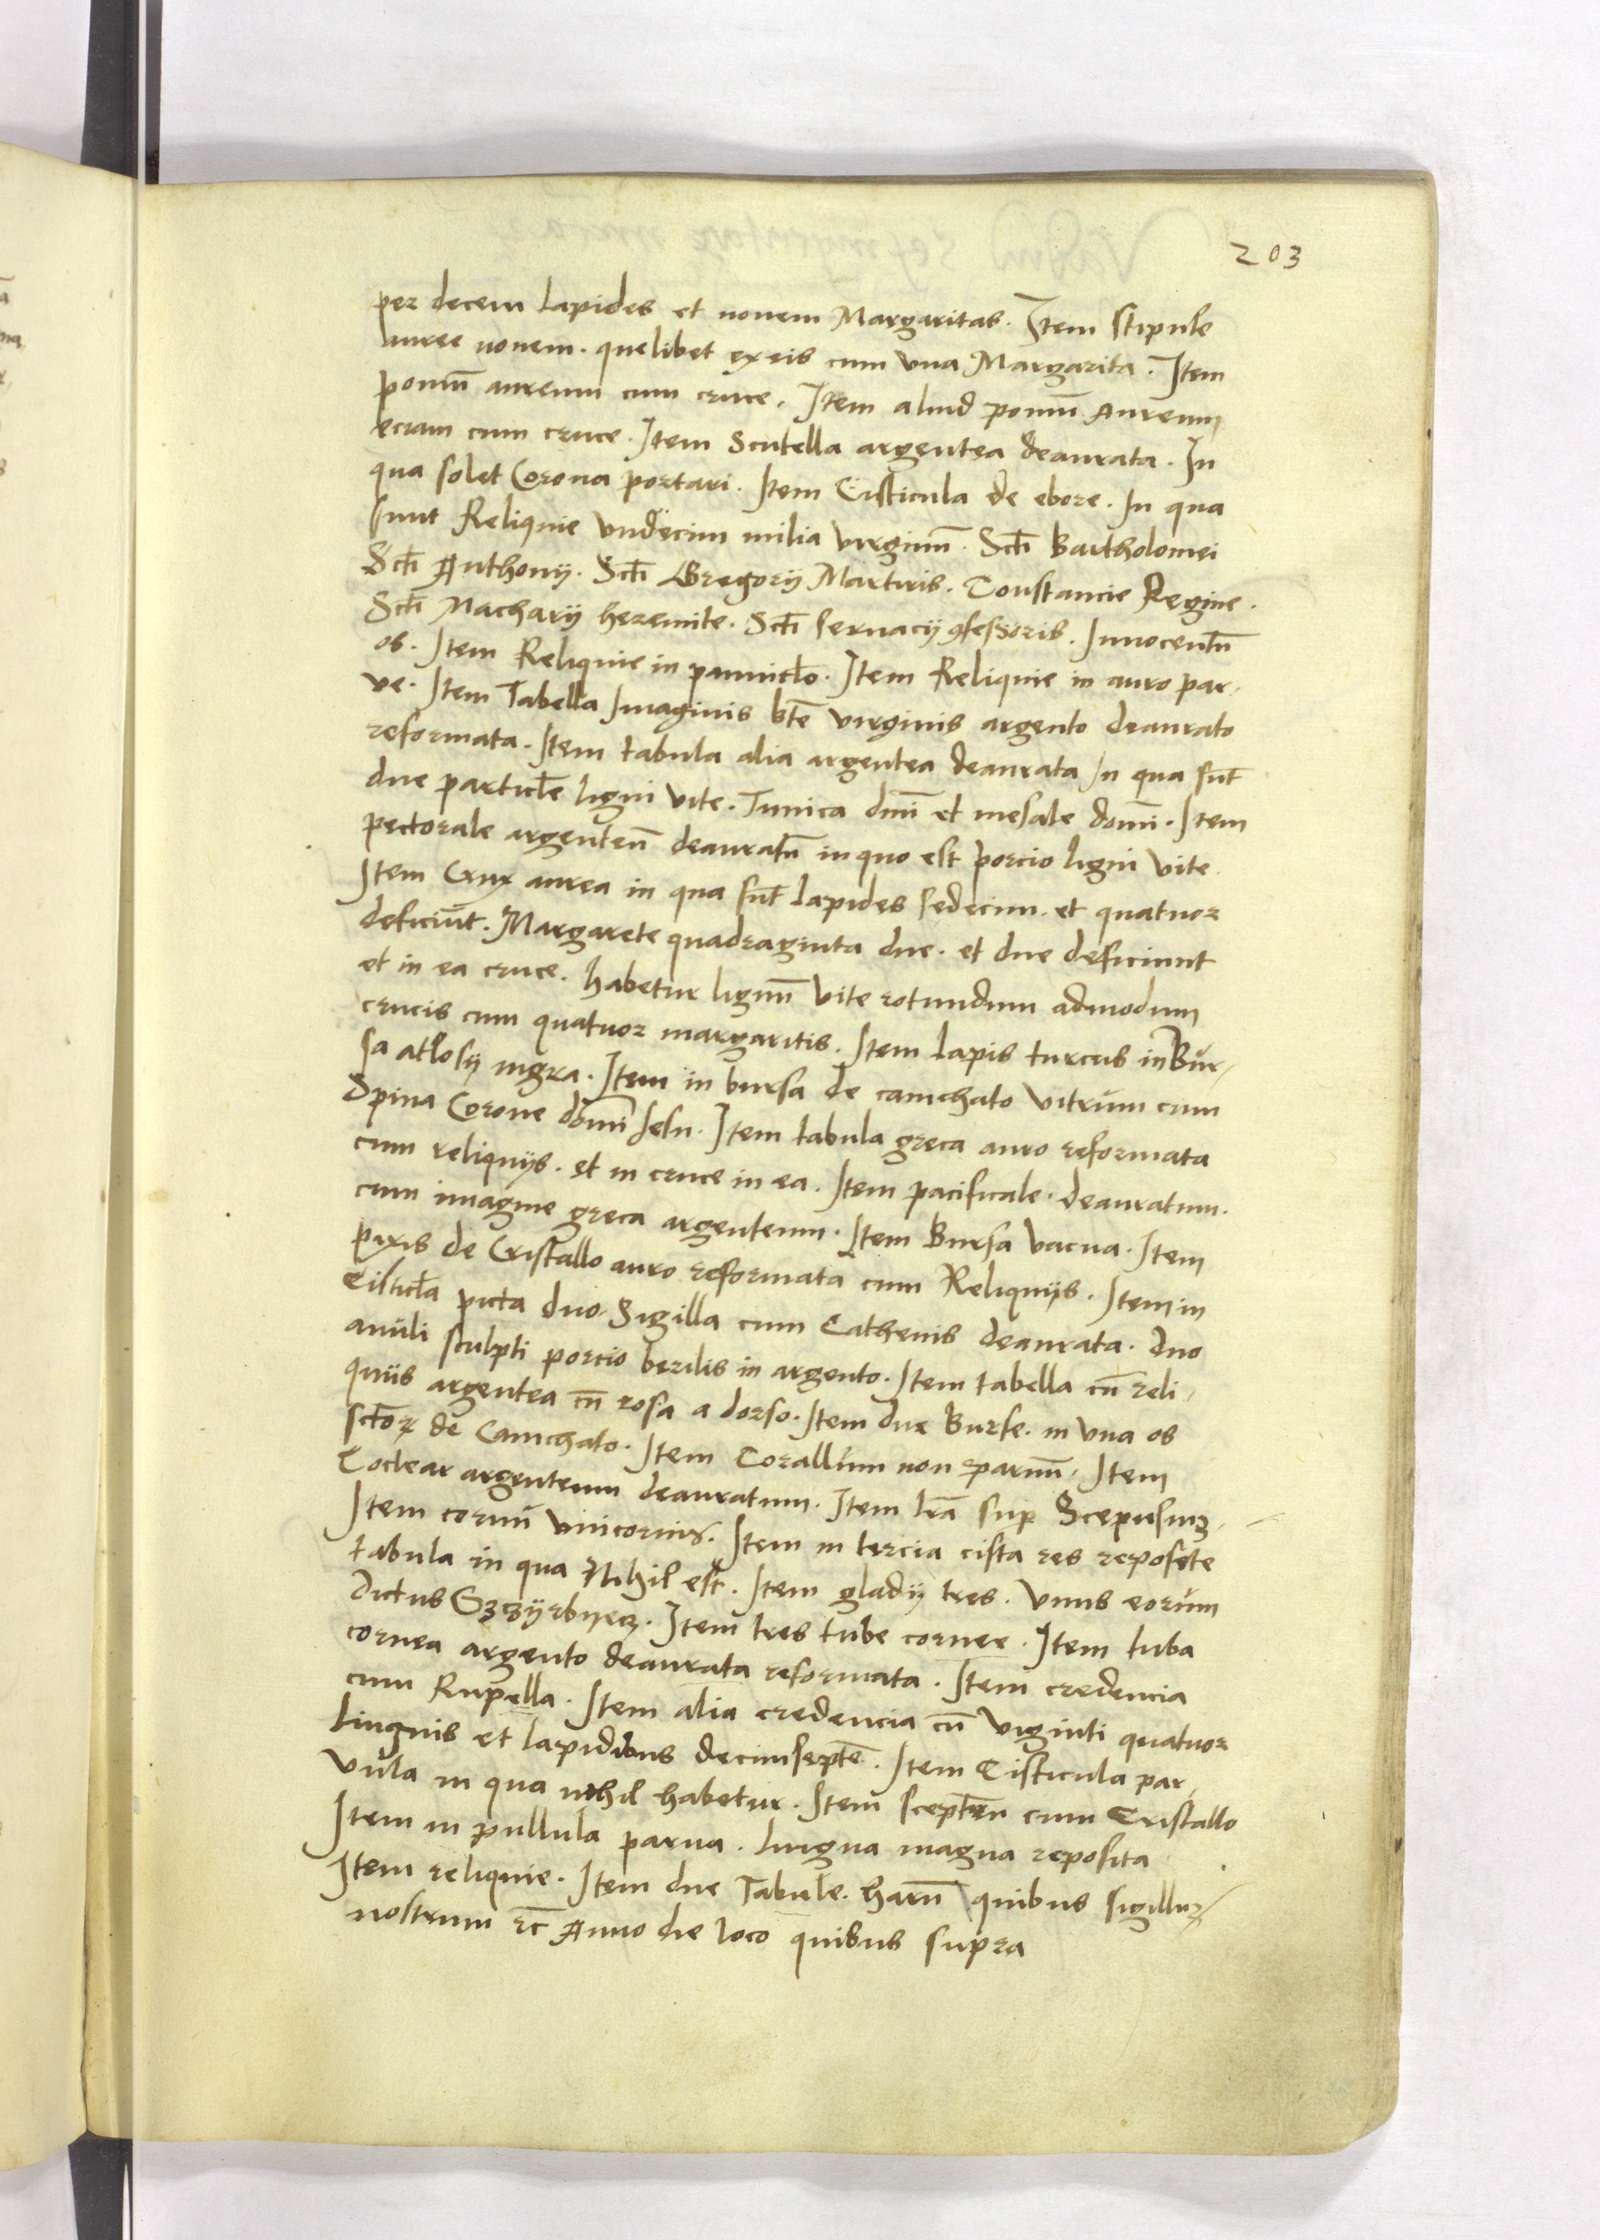 203
per decem lapides et nonem Margaritas. Item stipule
auree nonem. quelibet ex eis cum vna Margarita. Item
pomū aureum cum cruce. Item aliud pomū Aureum
eciam cum cruce. Item Scutella argentea deaurata. In
qua solet Corona portari. Item Cisticula de ebore. In qua
sunt Reliquie vndecim milia virginū. Scti Bartholomei
Scti Anthonij. Scti Gregorij Martiris. Constancie Regine.
Scti Macharij heremite. Scti Seruacij ꝯfessoris. Innocentū
os. Item Reliquie in pannicło. Item Reliquie in auro par-
ue. Item Tabella Imaginis bte virginis argento deaurato
reformata. Item tabula alia argentea deaurata In qua sūt
due particłe ligni vite. Tunica dnī et mesale domī. Item
pectorale argenteū deauratū in quo est porcio ligni vite.
Item Crux aurea in qua sūt lapides sedecim. et quatuor
deficiūt. Margarete quadraginta due. et due deficiunt
et in ea cruce. habetur lignū vite rotundum admodum
crucis cum quatuor margaritis. Item lapis turcus in Bur-
sa atłosij nigra. Item in bursa de camchato vitrum cum
Spina Corone domī Jesu. Item tabula greca auro reformata
cum reliquijs. et in cruce in ea. Item pacificale. deauratum.
cum imagine greca argenteum. Item Bursa vacua. Item
pixis de Cristallo auro reformata cum Reliquijs. Item in
Cisticła picta duo Sigilla cum Cathenis deaurata. duo
anuli sculpti porcio berilis in argento. Item tabella cū reli-
quiis argentea cū rosa a dorso. Item due Burse. in vna os
sctoꝝ de Camchato. Item Corallum non paruū. Item
Coclear argenteum deauratum. Item lrā sup Scepusiuȝ.
Item cornū vnicornis. Item in tercia cista res reposite
tabula in qua Nihil est. Item gladij tres. vnus eorum
dictus Szczyrbyecz. Item tres tube cornee. Item tuba
cornea argento deaurata reformata. Item credencia
cum Rupella. Item alia credencia cū viginti quatuor
linguis et lapidibus decimseptē. Item Cisticula par-
vula in qua nihil habetur. Item sceptrū cum Cristallo
Item in pullula parua. lingua magna reposita
Item reliquie. Item due Tabule. harū quibus sigilluȝ
nostrum etc Anno die loco quibus supra